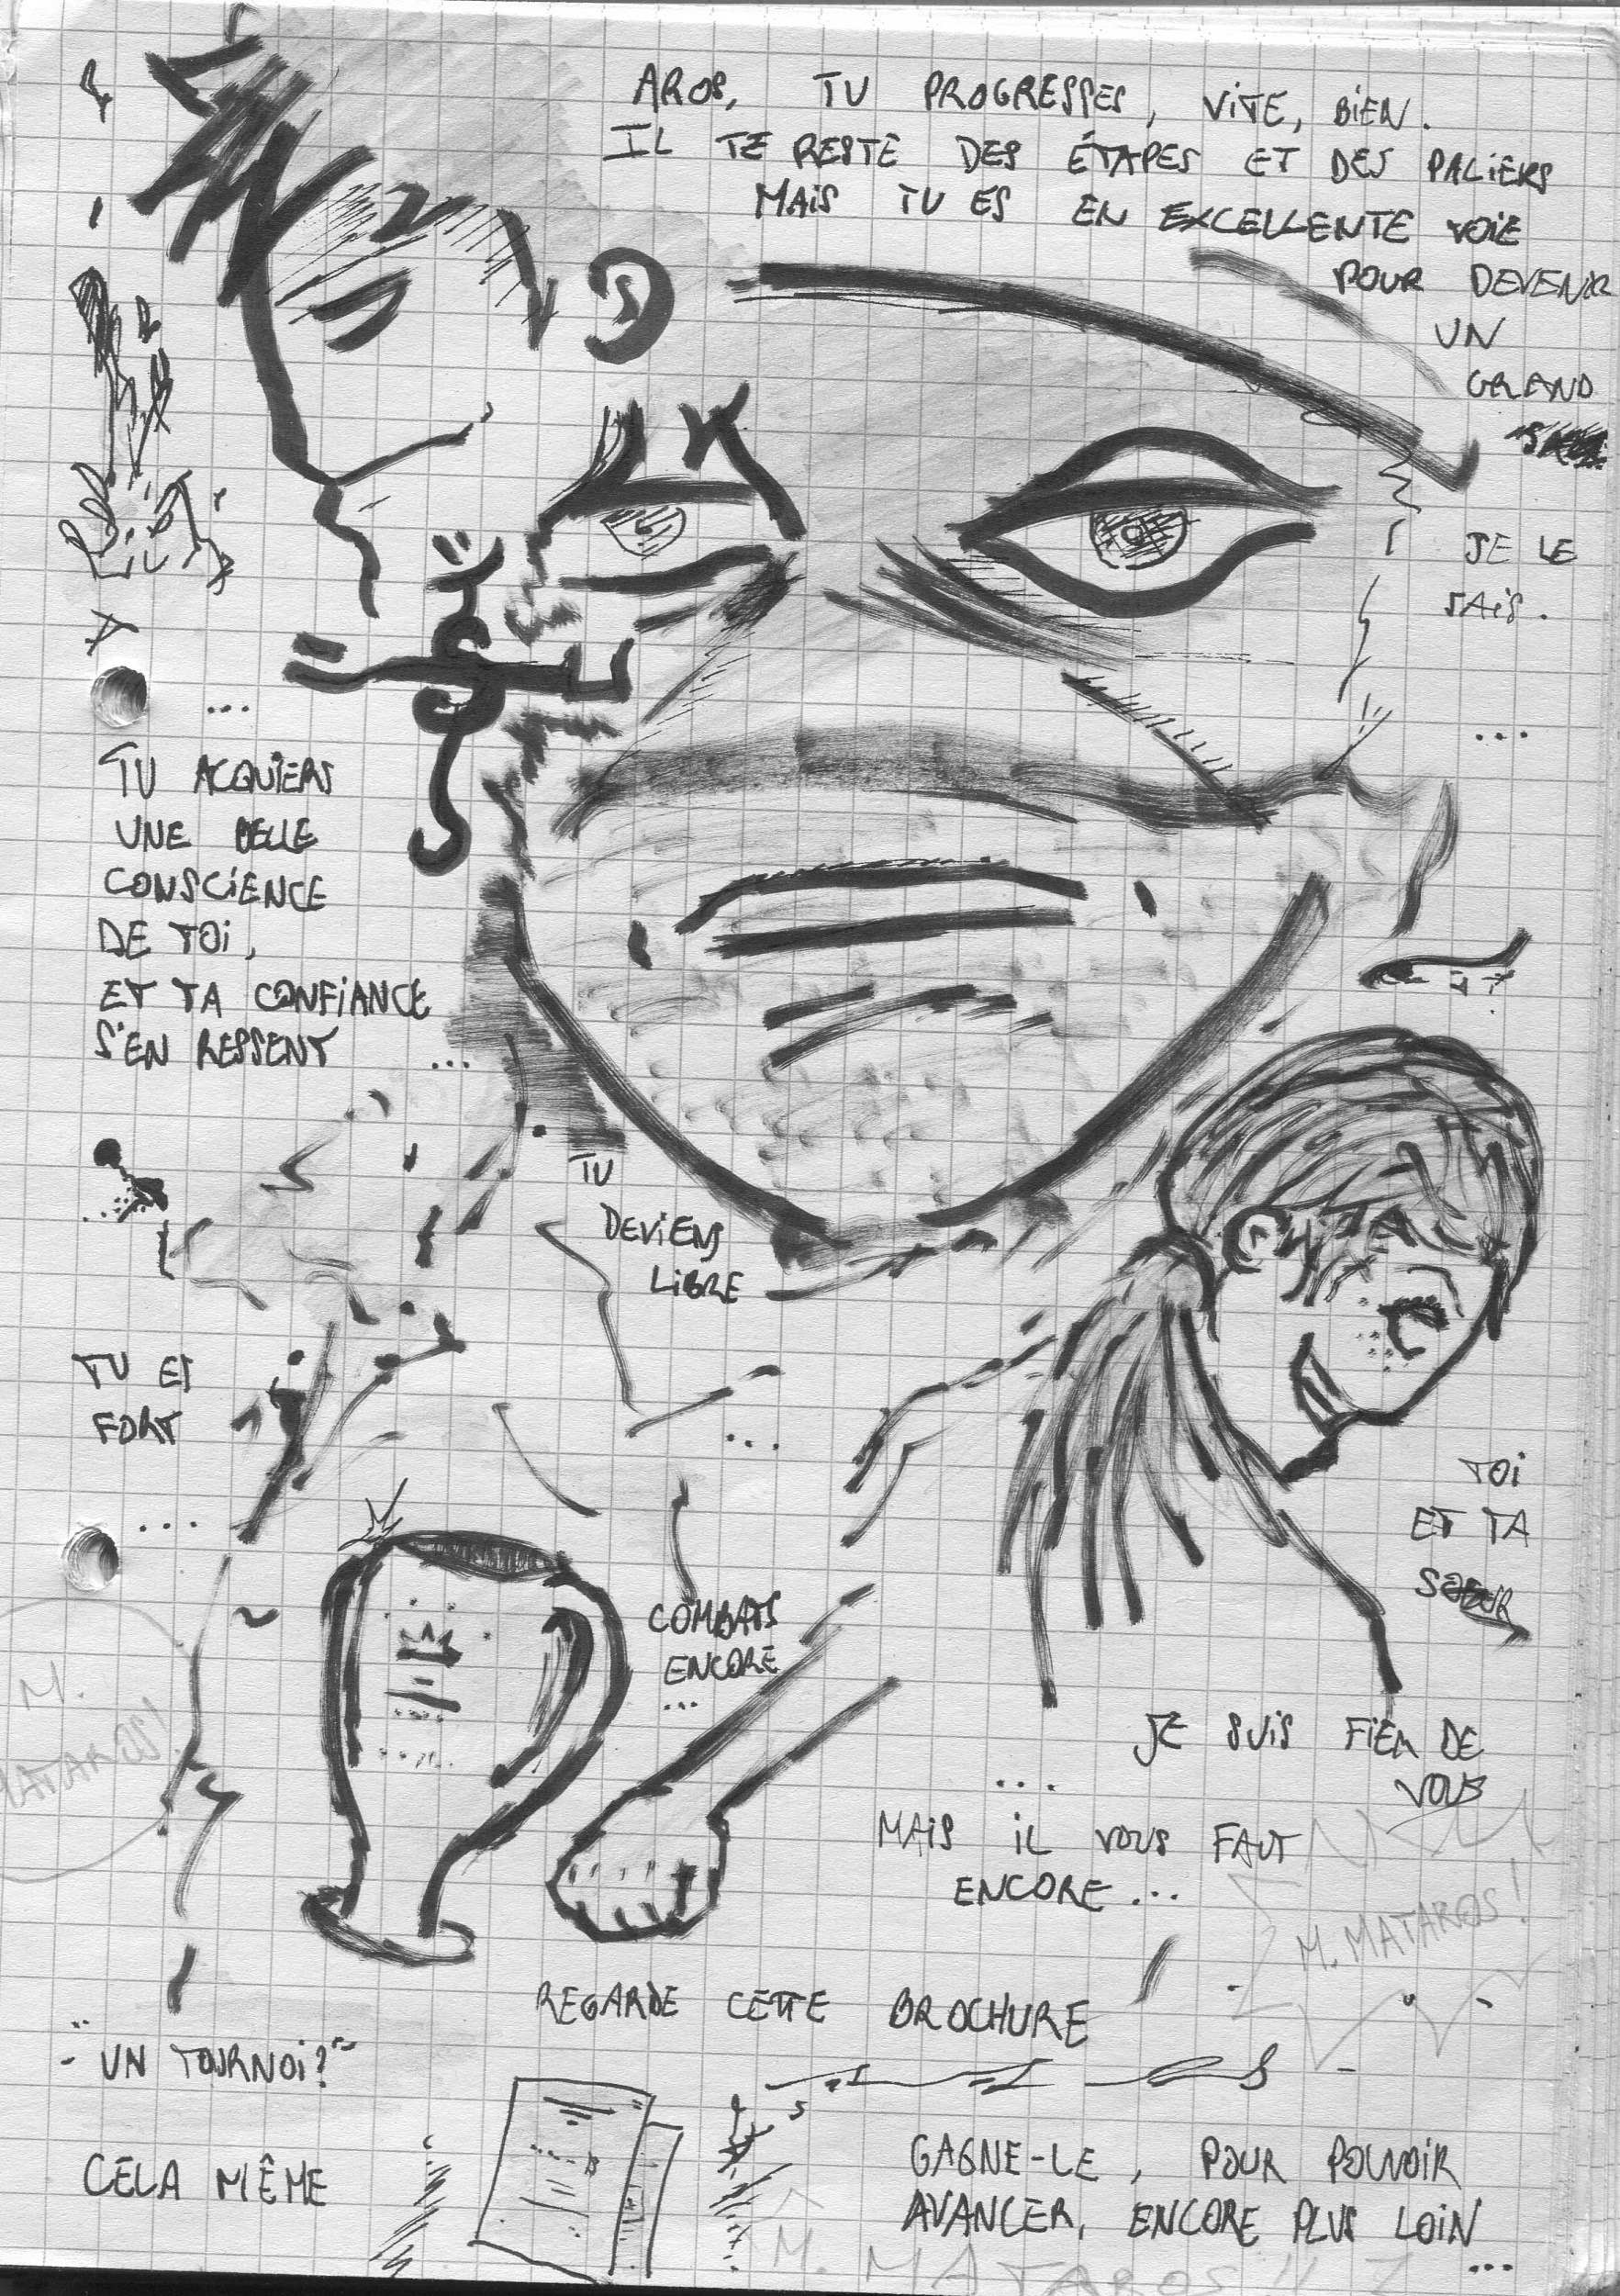 AROS, TU PROGRESSES, VITE, BIEN.
IL TE RESTE DES ÉTAPES ET DES PALIERS
MAIS TU ES EN EXCELLENTE VOIE
POUR DEVENIR
UN
GRAND
JE LE
SAIS.
...
...
TU ACQUIERS
UNE BELLE
CONSCIENCE
DE TOI,
ET TA CONFIANCE
S'EN RESSENT
...
TU
DEVIENS
LIBRE
...
TU ES
FORT
...
TOI
ET TA
SOEUR
COMBATS
ENCORE
...
JE SUIS FIER DE
VOUS
...
MAIS IL VOUS FAUT
ENCORE...
M.
MATAROS!
M. MATAROS!
REGARDE CETTE BROCHURE
- "UN TOURNOI?"
CELA MÊME
GAGNE-LE, POUR POUVOIR
AVANCER, ENCORE PLUS LOIN
...
M. MATAROS !!